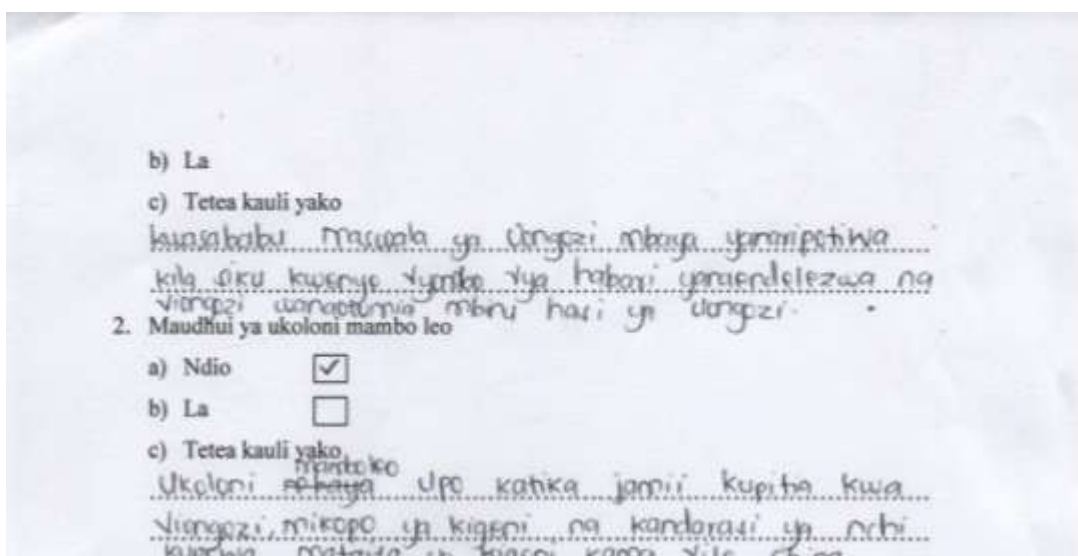 b) La
c) Tetea kauli yako
kwasababu maswala ya Uongozi mbaya yanaripotiwa
kila siku kwenye vyombo vya habari yanaendelezwa na
viongozi wanaotumia mbinu hasi ya Uongozi.
2. Maudhui ya ukoloni mambo leo
a) Ndio ✓
b) La
c) Tetea kauli yako
mamboleo
Ukoloni upo katika jamii kupitia kwa
viongozi, mikopo ya kigeni, na kandarasi ya nchi
kupewa mataifa ya kigeni kama vile china